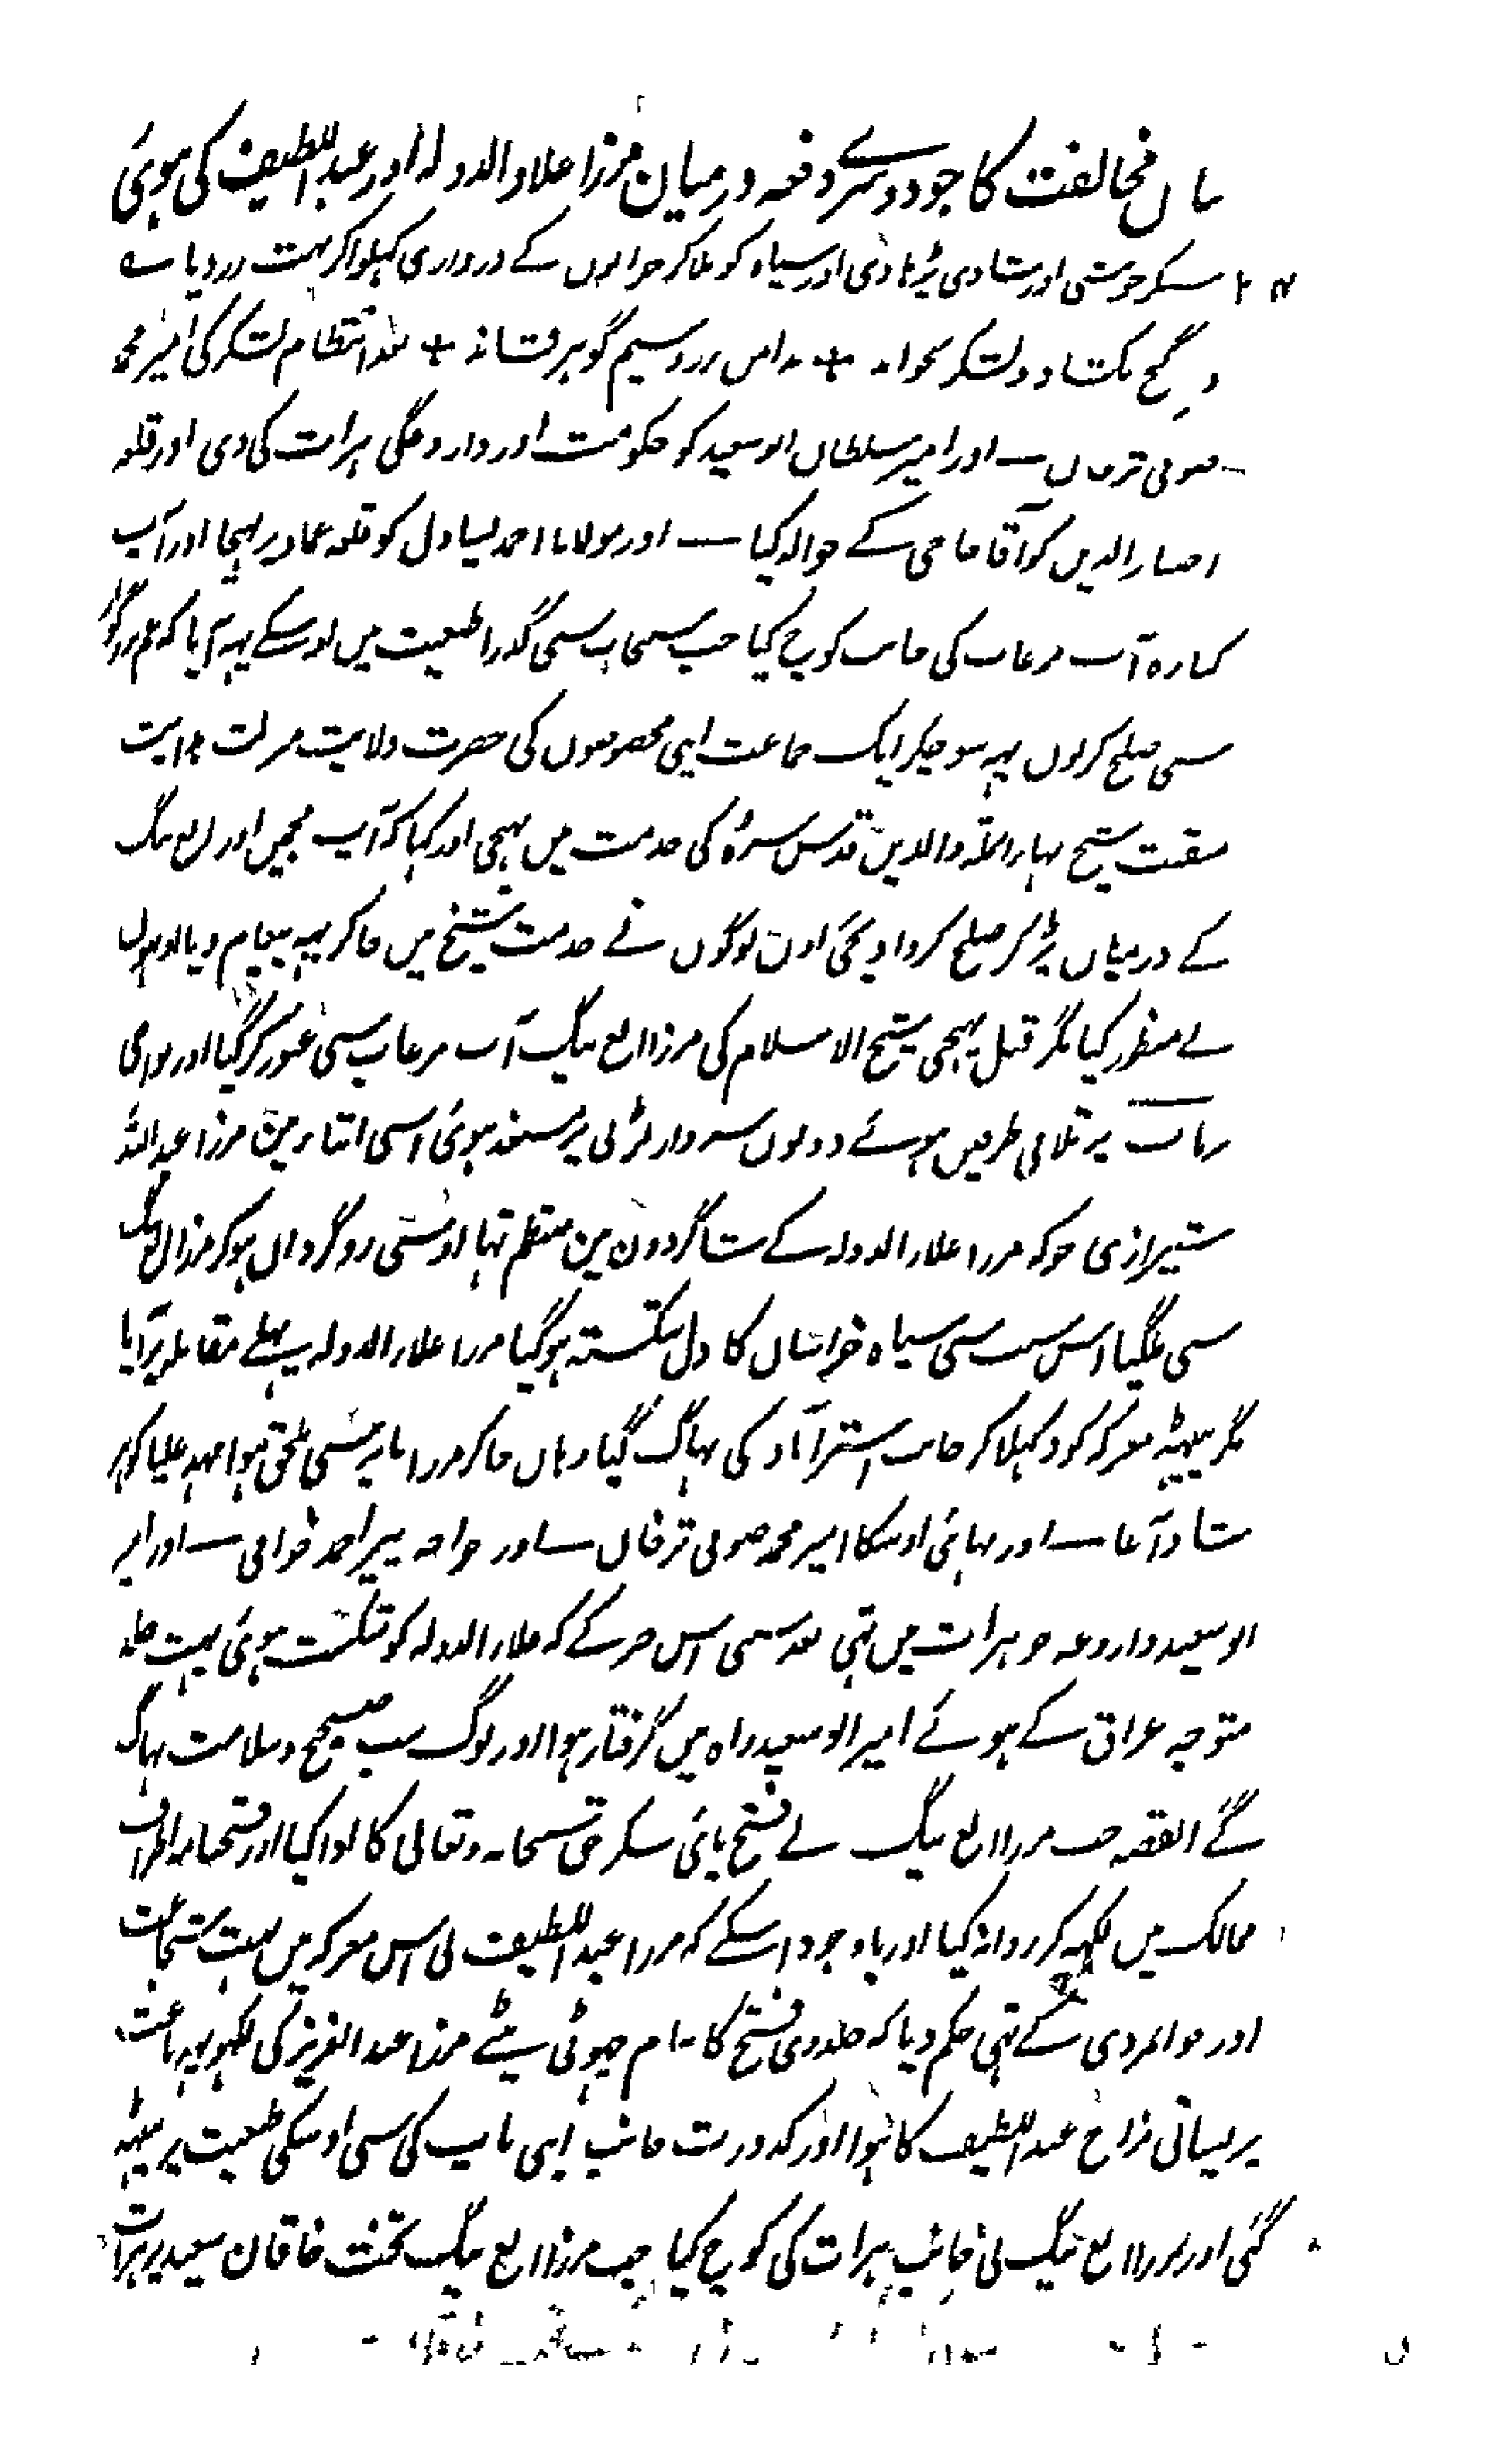 بیان مخالفت کا جو دوسرے دفعہ درمیان مرزا علاء الدولہ اور عبد اللطیف کی ہوئی
سنکر خوشی اور شادی اور سپاہ کو بلا کر خزانوں کے دروازی کہلوا کر بہت زر دیا
در گنج بکشاد و لشکر بخواند + بدامن زر و سیم گوہر فشاند + انتظام لشکر کی امیر محمد
صوفی ترخان اور امیر سلطان ابو سعید کو حکومت اور داروغگی ہرات کی دی اور قلعہ
اختیار الدین کو آقا حاجی کے حوالہ کیا اور مولانا احمد یساول کو قلعہ عماد پر بہیجا اور آپ
کنارہ آب مرغاب کی جانب کوچ کیا جب سنجاب سی گذرا طبیعت میں اوسکے یہہ آیا کہ عم بزرگوار
سی صلح کرلوں یہہ سوچکر ایک جماعت اپنی مخصوصوں کی حضرت ولایت منزلت ہدایت
منقبت شیخ بہاء الحق والدین قدس سرہ کی خدمت میں بہیجی اور کہا کہ آپ مجہیں اور الغ بیگ
کے درمیان پڑ کر صلح کروا دیجئی اون لوگوں نے خدمت شیخ میں جا کر یہہ پیغام دیا اونہوں
نے منظور کیا مگر قبل پہنچی شیخ الاسلام کی مرزا الغ بیگ آب مرغاب سی عبور کر گیا اور نواحی
رباط پر تلاقی طرفین ہوئے دونوں سردار لڑنی پر مستعد ہوئی اسی اثناء میں مرزا عبد اللہ
شیرازی جو کہ مرزا علاء الدولہ کے شاگردوں میں منتظم تہا اوسسی روگرداں ہو کر مرزا الغ بیگ
سی ملگیا اس سبب سی سپاہ خراسان کا دل شکستہ ہو گیا مرزا علاء الدولہ پہلے مقابلہ پر آیا
مگر پیٹہہ معرکہ کو دکہلا کر جانب استرآباد کی بہاگ گیا وہاں جا کر مرزا بابر سی ملحق ہوا مہد علیا گوہر
شاد آغا اور بہائی اوسکا امیر محمد صوفی ترخان اور خواجہ پیر احمد خوافی اور امیر
ابو سعید داروغہ جو ہرات میں تہی بعد سننی اس خبر کے کہ علاء الدولہ کو شکست ہوئی بہت جلد
متوجہ عراق کے ہوئے امیر ابو سعید راہ میں گرفتار ہوا اور لوگ سب صحیح و سلامت بہاگ
گئے القصہ جب مرزا الغ بیگ نے فتح پائی شکر حق سبحانہ و تعالی کا ادا کیا اور فتحنامہ اطراف
ممالک میں لکہہ کر روانہ کیا اور باوجود اسکے کہ مرزا عبد اللطیف نی اس معرکہ میں بہت شجاعت
اور جوانمردی کے تہی حکم دیا کہ جلدوی فتح کا نام چہوٹی بیٹے مرزا عبد العزیز کی لکہو یہہ باعث
پریشانی مزاج عبد اللطیف کا ہوا اور کدورت جانب اپنی باپ کی سی اوسکی طبیعت پر بیٹہہ
گئی اور مرزا الغ بیگ نی جانب ہرات کی کوچ کیا جب مرزا الغ بیگ تخت خاقان سعید پر ہرات